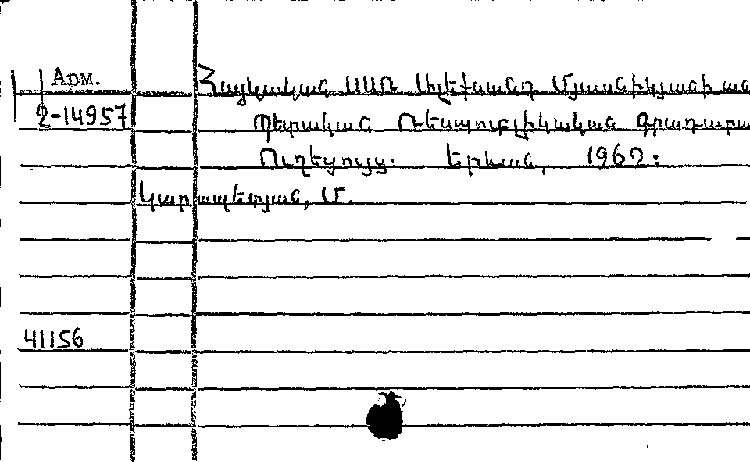 Арм.
2-14957
Հայկական ՍՍՌ Ալեքսանդր Մյասնիկյանի ան
Պետական Ռեսպուբլիկական Գրադարա
Ուղեցույց. Երևան, 1962:
Կարապետյան, Մ.
41156